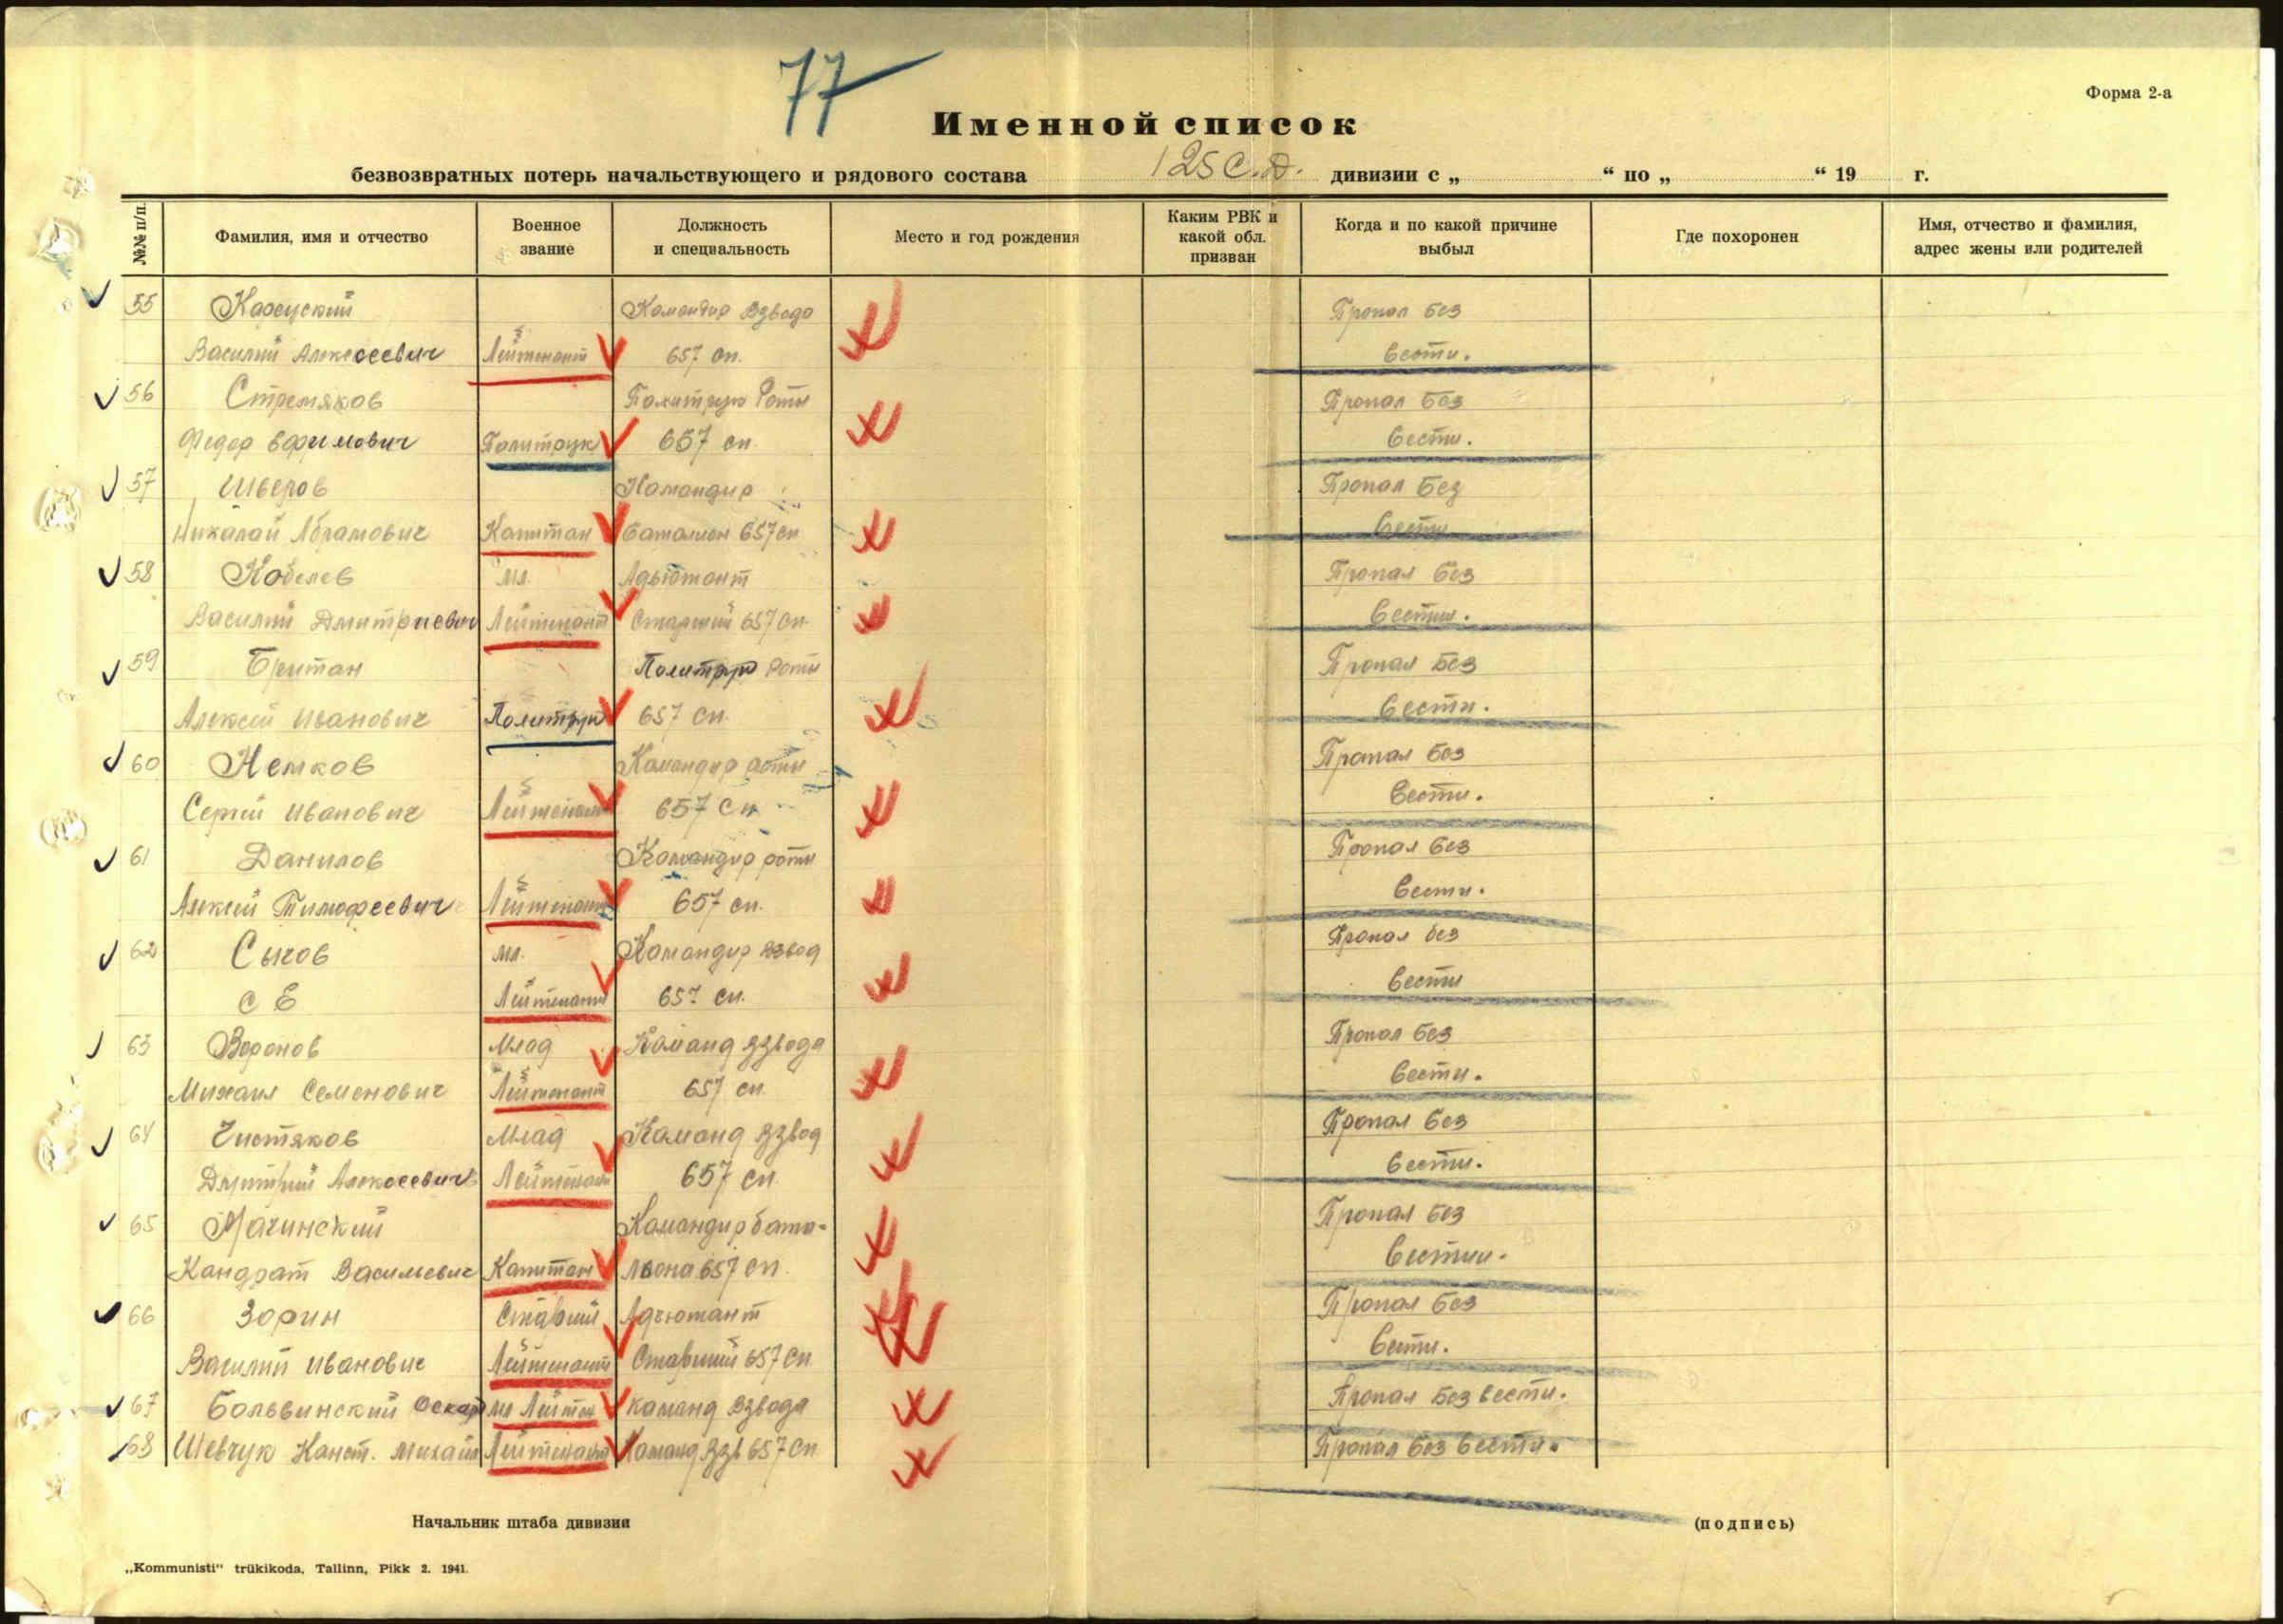 77
Форма 2-а
Именной список
безвозвратных потерь начальствующего и рядового состава 125 С.Д. дивизии с „ “ по „ “ 19 г.
№№ п/п. Фамилия, имя и отчество Военное звание Должность и специальность Место и год рождения Каким РВК и какой обл. призван Когда и по какой причине выбыл Где похоронен Имя, отчество и фамилия, адрес жены или родителей
55 Командир Взвода Пропал без
Василий Алексеевич Лейтенант 657 сп. вести.
56 Стремяков Политрук Роты Пропал без
Федор Ефимович Политрук 657 сп. вести.
57 Шверов Командир Пропал без
Николай Абрамович Капитан баталион 657 сп вести
58 Кобелев мл. Адьютант Пропал без
Василий Дмитриевич Лейтенант Старший 657 сп. вести.
59 Британ Политрук роты Пропал без
Алексей Иванович Политрук 657 сп. вести.
60 Немков Командир роты Пропал без
Сергей Иванович Лейтенант 657 сп вести.
61 Данилов Командир роты Пропал без
Алексей Тимофеевич Лейтенант 657 сп. вести.
62 Сычов мл. Командир взвод Пропал без
С Е Лейтенант 657 сп. вести
63 Воронов Млад Команд взвода Пропал без
Михаил Семенович Лейтенант 657 сп. вести.
64 Чистяков Млад Команд взвод Пропал без
Дмитрий Алексеевич Лейтенант 657 сп. вести.
65 Мачинский Командир бата- Пропал без
Кандрат Васильевич Капитан льона 657 сп. вести.
66 Зорин Старший Адъютант Пропал без
Василий Иванович Лейтенант Старший 657 сп. вести.
67 Большинский Оскар мл Лейтен команд Взвода Пропал без вести.
68 Шевчук Конст. Михаил Лейтенант Команд Взв 657 сп Пропал без вести.
Начальник штаба дивизии (подпись)
„Kommunisti“ trükikoda, Tallinn, Pikk 2. 1941.